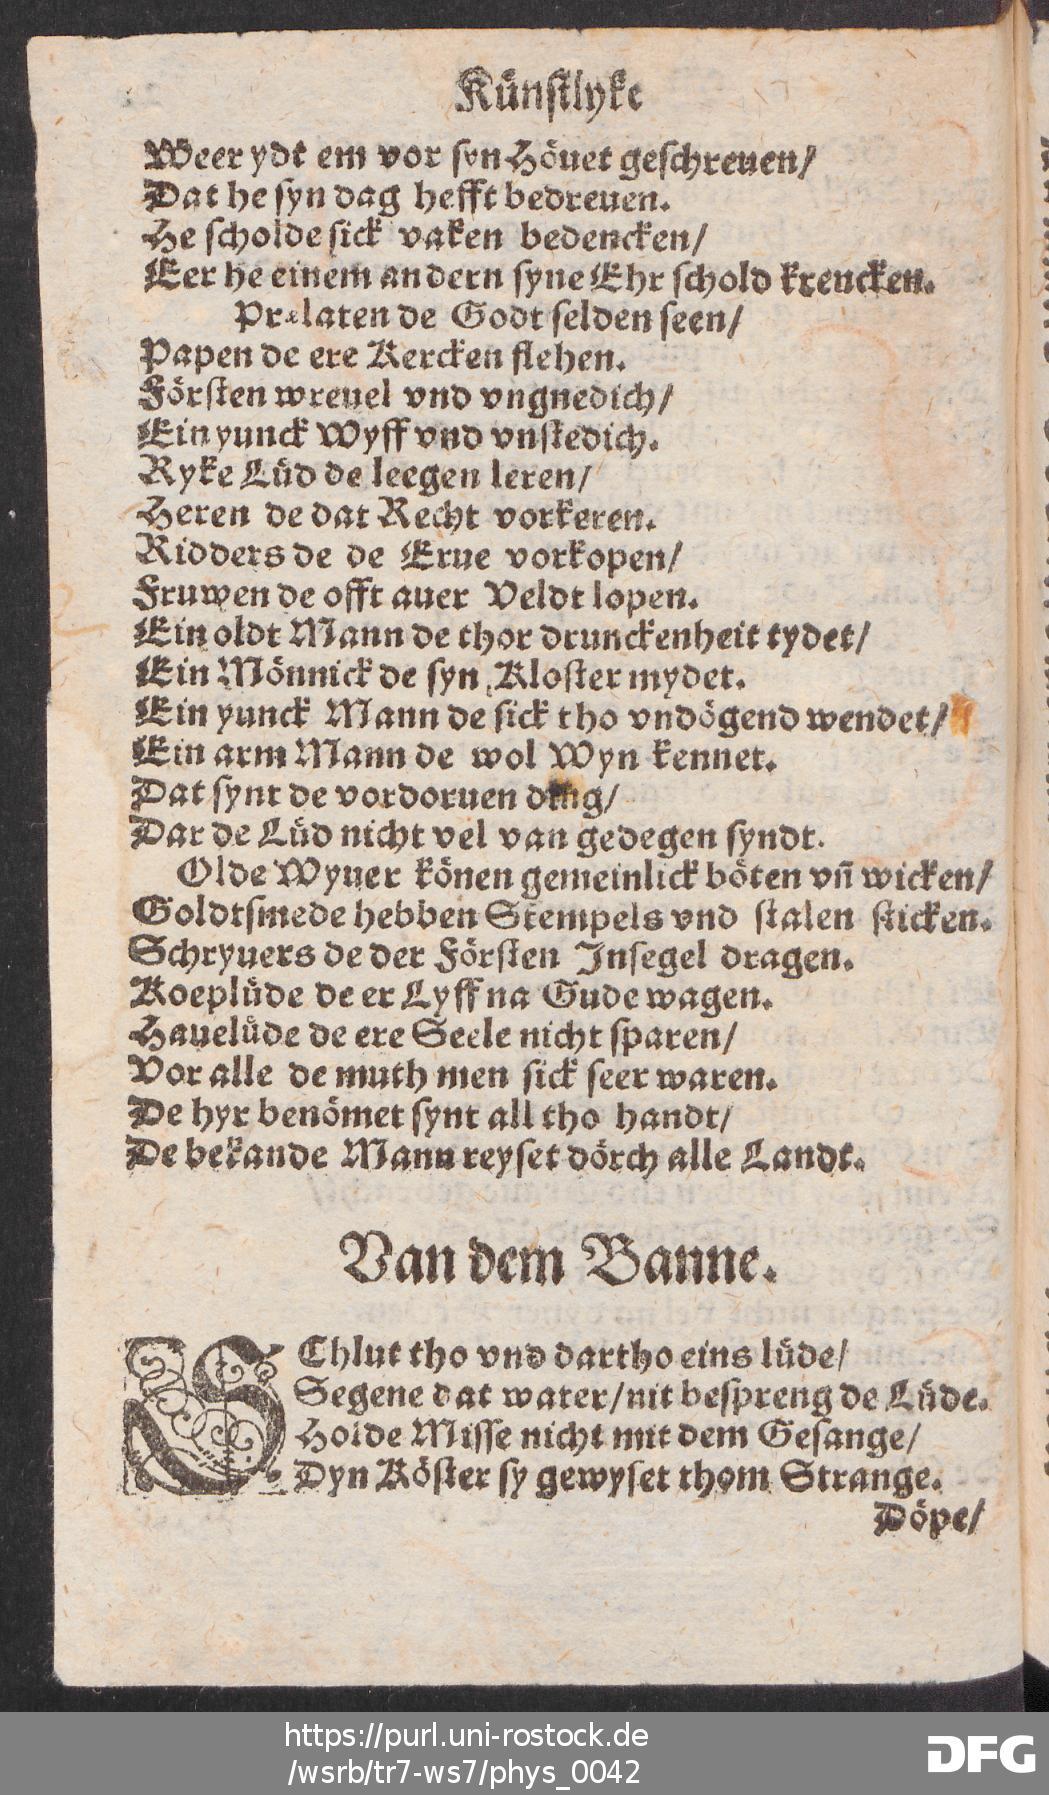 Künstlyke
Weer ydt em vor syn Höuet geschreuen/
Dat he syn dag hefft bedreuen.
He scholde sick vaken bedencken/
Eer he einem andern syne Ehr schold krencken.
Prælaten de Godt selden seen/
Papen de ere Kercken flehen.
Försten wreuel vnd vngnedich/
Ein yunck Wyff vnd vnstedich.
Ryke Lüd de leegen leren/
Heren de dat Recht vorkeren.
Ridders de de Erue vorkopen/
Fruwen de offt auer Veldt lopen.
Ein oldt Mann de thor drunckenheit tydet/
Ein Mönnick de syn Kloster mydet.
Ein yunck Mann de sick tho vndögend wendet/
Ein arm Mann de wol Wyn kennet.
Dat synt de vordoruen ding/
Dar de Lüd nicht vel van gedegen syndt.
Olde Wyuer könen gemeinlick böten vñ wicken/
Goldtsmede hebben Stempels vnd stalen sticken.
Schryuers de der Försten Insegel dragen.
Koeplüde de er Lyff na Gude wagen.
Hauelüde de ere Seele nicht sparen/
Vor alle de muth men sick seer waren.
De hyr benömet synt all tho handt/
De bekande Mann reyset dörch alle Landt.
Van dem Banne.
SChlut tho vnd dartho eins lüde/
Segene dat water/nit bespreng de Lüde.
Holde Misse nicht mit dem Gesange/
Dyn Köster sy gewyset thom Strange.
Döpe/
https://purl.uni-rostock.de
/wsrb/tr7-ws7/phys_0042
DFG